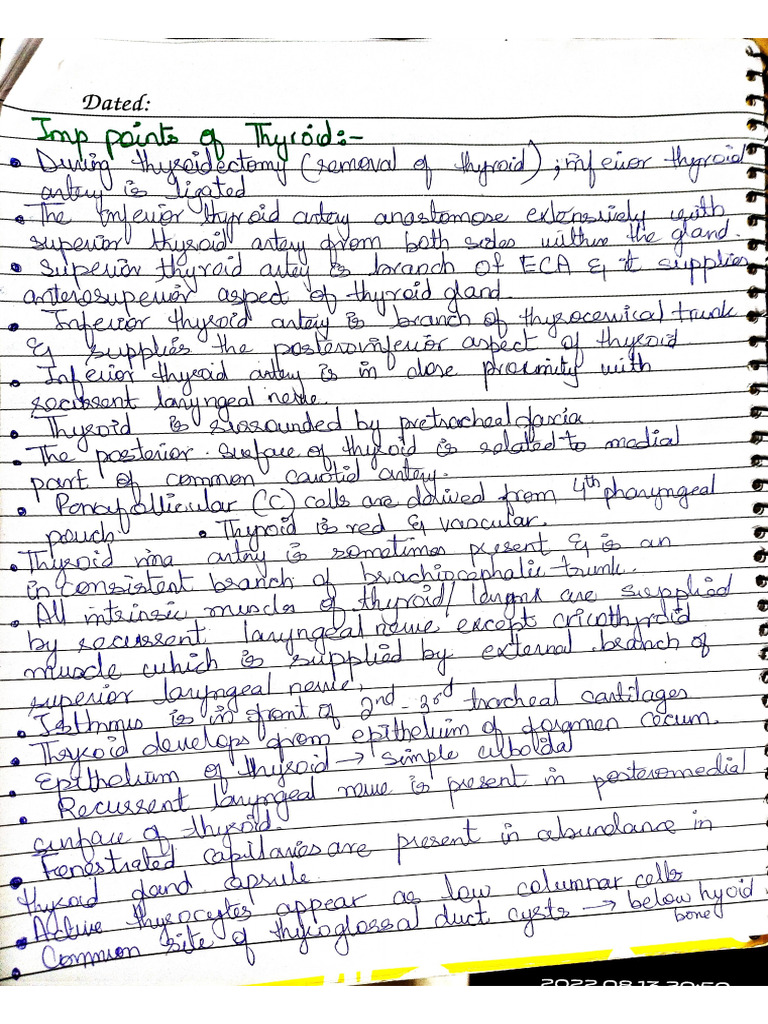 Dated:
Imp points of Thyroid:-
• During thyroidectomy (removal of thyroid) ; inferior thyroid
artery is ligated
• The Inferior thyroid artery anastomose extensively with
superior thyroid artery from both sides within the gland.
• Superior thyroid artery is branch of ECA & it supplies
anterosuperior aspect of thyroid gland.
• Inferior thyroid artery is branch of thyrocervical trunk
& supplies the posteroinferior aspect of thyroid
• Inferior thyroid artery is in close proximity with
recurrent laryngeal nerve.
• Thyroid is surrounded by pretracheal fascia.
• The posterior surface of thyroid is related to medial
part of common carotid artery.
• Parafollicular ('C') cells are derived from 4th pharyngeal
pouch. • Thyroid is red & vascular.
• Thyroid ima artery is sometimes present & is an
inconsistent branch of brachiocephalic trunk.
• All intrinsic muscles of thyroid/ larynx are supplied
by recurrent laryngeal nerve except cricothyroid
muscle which is supplied by external branch of
superior laryngeal nerve.
• Isthmus is in front of 2nd - 3rd tracheal cartilages
• Thyroid develops from epithelium of foramen cecum.
• Epithelium of thyroid → simple cuboidal
• Recurrent laryngeal nerve is present in posteromedial
surface of thyroid.
• Fenestrated capillaries are present in abundance in
thyroid gland capsule.
• Active thyrocytes appear as low columnar cells
• Common site of thyroglossal duct cysts → below hyoid
bone
2022.08.13 20:50